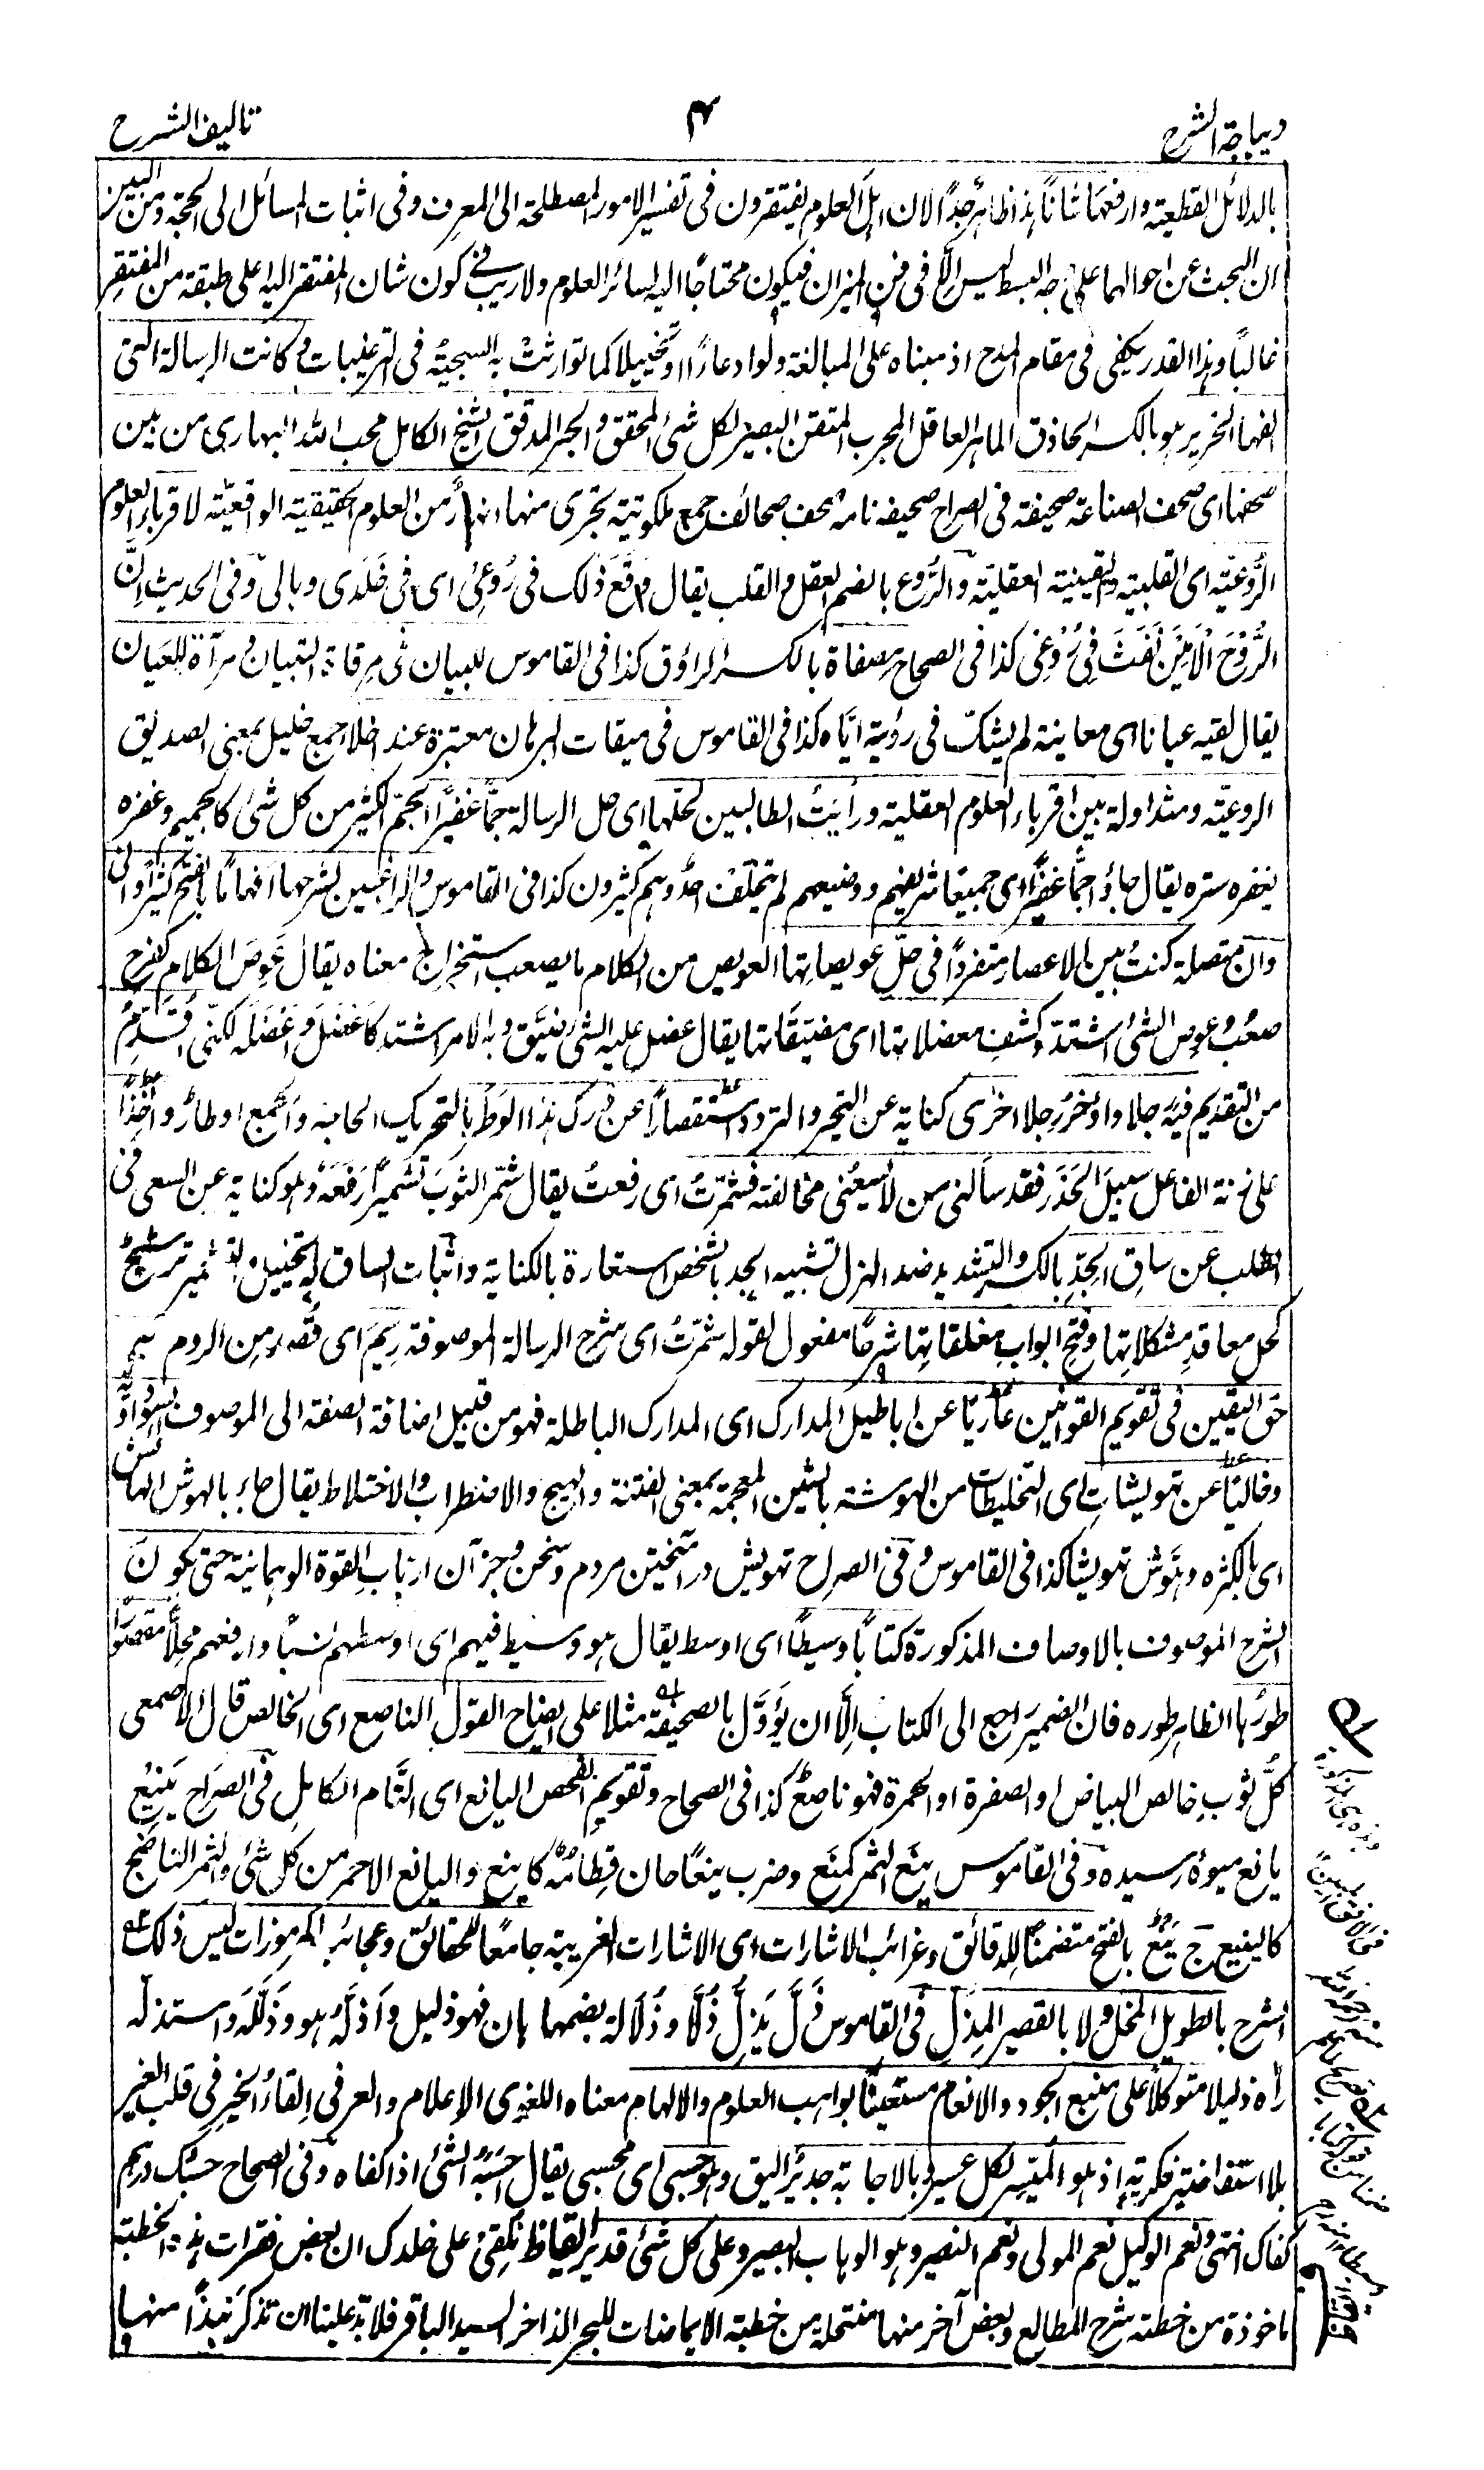 ديباجة الشرح
٤
تاليف الشرح
بالدلائل القطعية وارفعها شاناً هذا ظاهر جداً لان اهل العلوم يفتقرون فى تفسير الامور المصطلحة الى المعرف وفى اثبات المسائل الى الحجة ومن البين
ان البحث عن احوالهما على وجه البسط ليس الا فى فن الميزان فيكون محتاجاً اليه لسائر العلوم ولا ريب فى كون شان المفتقر اليه اعلى طبقة من المفتقر
غالباً وهذا القدر يكفى فى مقام المدح اذ مبناه على المبالغة ولو ادعاءً او تخييلا كما توارثت به السجية فى الترغيبات و كانت الرسالة التى
الفها النحرير هو بالكسر الحاذق الماهر العاقل المجرب المتقن البصير لكل شئ المحقق والحبر المدقق الشيخ الكامل محب الله البهارى من بين
صحفها اى صحف الصناعة صحيفة فى الصراح صحيفه نامه صحف صحائف جمع ملكوتية تجرى منها انهارٌ من العلوم الحقيقية الواقعيّة لاقرباء العلوم
الرُّوعيّة اى القلبية واليقينية العقليّة والرُّوع بالضم العقل والقلب يقال وقع ذلك فى رُوعى اى فى خَلَدى وبالى وفى الحديث اِنَّ
الرُّوْحَ الْاَمِيْنَ نَفَثَ فِىْ رُوْعِىْ كذا فى الصحاح مصفاة بالكسر الراؤق كذا فى القاموس للبيان فى مرقاة التبيان و مرآة للعَيان
يقال لقيه عيانا اى معاينة لم يشكّ فى رؤية ايّاه كذا فى القاموس فى ميقات البرهان معتبرة عند اخلا جمع خليل بمعنى الصديق
الروعيّة ومتداولة بين اقرباء العلوم العقلية ورأيتُ الطالبين لحلّها اى حل الرسالة جمّاً غفيراً الجمّ الكثير من كل شئ كالجميم وغفره
يغفره ستره يقال جاؤا جمّاً غفيراً اى جميعا شريفهم ووضيعهم لم يتخلف احدٌ وهم كثيرون كذا فى القاموس والراغبين لشرحها افهاماً بالفتح كثيراً وانى
وان متصلة كنتُ بين الاعصار متفرداً فى حلّ عويصاتها العويص من الكلام ما يصعب استخراج معناه يقال عَوِصَ الكلام كفرح
صعُب وعوص الشئ اشتدّ وكشف معضلاتها اى مضيّقاتها يقال عضل عليه الشئ ضيّق وبه الامر اشتد كاَعضل واَعضله لكنّى اُقدّم
من التقديم فيه رِجلا واُوخّر رِجلا اخرى كناية عن التحير والتردد استقصاراً عن درك هذا الوَطَر بالتحريك الحاجة والجمع اوطار وآخِذاً
على زنة الفاعل سبيلَ الحَذَر فقد سألنى من لا يسعُنى مخالفته فشمّرتُ اى رفعتُ يقال شمّر الثوبَ تشميراً رَفعَه وهو كناية عن السعى فى
الطلب عن ساقِ الجِدّ بالكسر والتشديد ضد الهزل تشبيه الجد بالشخص استعارة بالكناية واثبات الساق له تخييل والتشمير ترشيح
لحل معاقدِ مشكلاتِها وفتحِ ابوابِ مغلقاتِها شرحاً مفعول لقوله شمّرتُ اى شرح الرسالة الموصوفة رِيْمَ اى قُصد من الروم سير
حَق اليقين فى تقويم القوانين عاريّا عن اباطيل المدارك اى المدارك الباطلة فهو من قبيل اضافة الصفة الى الموصوف
وخاليًا عن تهويشاتِ اى التخليطات من الهوشة بالشين المعجمة بمعنى الفتنة والهيج والاضطراب والاختلاط يقال جاء بالهوش الهائش
اى بالكثره وهَوّش تهويشا كذا فى القاموس و فى الصراح تهويش در آميختن مردم وسخن وجز آن ارباب القوة الوهمانية حتى يكون
الشرح الموصوف بالاوصاف المذكورة كتاباً وسيطاً اى اوسط يقال هو وسيط فيهم اى اوسطهم نسباً وارفعهم محلاً مقصوراً
طورُها الظاهر طوره فان الضمير راجع الى الكتاب اِلَّا ان يُؤوَّل بالصحيفة مثلا على ايضاح القول الناصع اى الخالص قال الاصمعى
كلُّ ثوبٍ خالص البياض او الصفرة او الحمرة فهو ناصعٌ كذا فى الصحاح وتقويم الفحص اليانع اى التّام الكامل فى الصراح ينيع
يانع ميوۀ رسيده و فى القاموس ينَع الثمر كمنَع وضرب ينعًا حان قِطافُهُ كاَينع واليانع الاحمر من كل شئ والثمر الناضج
كالينيع ج يَنْعٌ بالفتح متضمناً للدقائق وغرائب الاشارات اى الاشارات الغريبة جامعًا للحقائق وعجائب الرموزات ليس ذلك
الشرح بالطويل المخل ولا بالقصير المذل فى القاموس ذَلَّ يَذِلُّ ذُلّا وذُلالة بضمهما هان فهو ذليل واَذلَّه هو وذَلَّلَه واستذله
رآه ذليلا متوكلاً على منبع الجود والانعام مستعيناً بواهب العلوم والالهام معناه اللغوى الاعلام والعرفى القاء الخير فى قلب الغير
بلا استفاضة فكرية اذ هو الميسِّر لكل عسير و بالاجابة جديرٌ اليق وهو حسبى اى محسبى يقال احسبَهُ الشئ اذا كفاه و فى الصحاح حسبُك درهم
كفاك انتهى ونعم الوكيل نعم المولى ونعم النصير وهو الوهاب البصير وعلى كل شئ قدير ايقاظ نُلقى على خلدك ان بعض فقرات هذه الخطبة
ماخوذة من خطبة شرح المطالع وبعض آخر منها منتحلة من خطبة الايماضات للبحر الذاخر السيد الباقر فلا بدّ علينا ان نذكر نُبذاً منها